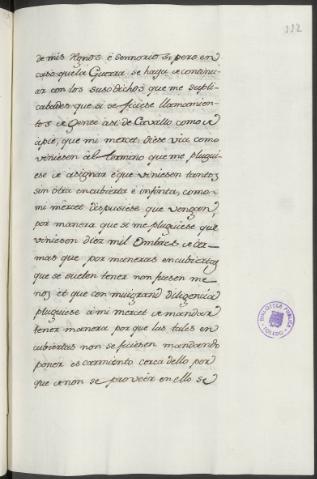 112
de mis Rgnos é sennorios, pero en
caso que la Guerra se haya de continu
ar con los susodichos que me supli
cabades que si se ficiese llamamien
tos de Gente asi de Cavallo como de
apie, que mi mercet diese via como
viniesen al termino que me plugui
ese de asignar é que viniesen tantos
sin otra encubierta é infinta, como
mi mercet dispusiese que vengan,
por manera que si me pluguiese que
viniesen diez mil Ombres de ar
mas que por maneras encubiertas
que se suelen tener non fuesen me
nos et que con mui grand diligencia
pluguiese á mi mercet de mandar
tener manera por que las tales en
cubiertas non se ficiesen mandando
poner escarmiento cerca dello por
que á non se proveer en ello se
BIBLIOTECA PUBLICA
TOLEDO